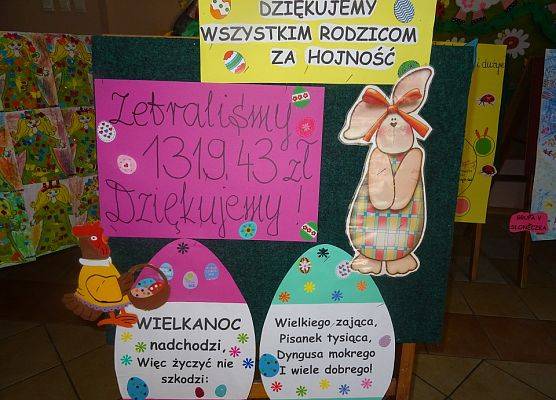 DZIĘKUJEMY
WSZYSTKIM RODZICOM
ZA HOJNOŚĆ
Zebraliśmy
1319,43 zł
Dziękujemy!
WIELKANOC
nadchodzi,
Więc życzyć nie
szkodzi:
Wielkiego zająca,
Pisanek tysiąca,
Dyngusa mokrego
I wiele dobrego!
i duże
GRUPA V
SŁONECZKA